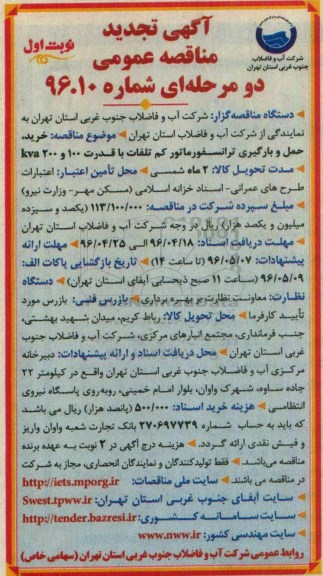 شرکت آب و فاضلاب
جنوب غربی استان تهران
آگهی تجدید
مناقصه عمومی
نوبت اول
دو مرحله‌ای شماره ۹۶.۱۰
دستگاه مناقصه‌گزار: شرکت آب و فاضلاب جنوب غربی استان تهران به
نمایندگی از شرکت آب و فاضلاب استان تهران موضوع مناقصه: خرید،
حمل و بارگیری ترانسفورماتور کم تلفات با قدرت ۱۰۰ و ۲۰۰ kva
مدت تحویل کالا: ۲ ماه شمسی محل تأمین اعتبار: اعتبارات
طرح های عمرانی- اسناد خزانه اسلامی (مسکن مهر- وزارت نیرو)
مبلغ سپرده شرکت در مناقصه: ۱۱۳/۱۰۰/۰۰۰ (یکصد و سیزده
میلیون و یکصد هزار) ریال در وجه شرکت آب و فاضلاب استان تهران
مهلت دریافت اسناد: ۹۶/۰۴/۱۸ الی ۹۶/۰۴/۲۵ مهلت ارائه
پیشنهادات: ۹۶/۰۵/۰۷ (تا ساعت ۱۴) تاریخ بازگشایی پاکات الف:
۹۶/۰۵/۰۹ (ساعت ۱۱ صبح ذیحسابی آبفای استان تهران) دستگاه
نظارت: معاونت نظارت بر بهره برداری بازرس فنی: بازرس مورد
تأیید کارفرما محل تحویل کالا: رباط کریم، میدان شهید بهشتی،
جنب فرمانداری، مجتمع انبارهای مرکزی، شرکت آب و فاضلاب جنوب
غربی استان تهران محل دریافت اسناد و ارائه پیشنهادات: دبیرخانه
مرکزی آب و فاضلاب جنوب غربی استان تهران واقع در کیلومتر ۲۲
جاده ساوه، شهرک واوان، بلوار امام خمینی، روبه‌روی پاسگاه نیروی
انتظامی هزینه خرید اسناد: ۵۰۰/۰۰۰ (پانصد هزار) ریال می باشد
که باید به حساب شماره ۲۷۰۶۹۷۷۳۹ بانک تجارت شعبه واوان واریز
و فیش نقدی ارائه گردد. هزینه درج آگهی در ۲ نوبت به عهده برنده
مناقصه می‌باشد. فقط تولیدکنندگان و نمایندگان انحصاری، مجاز به شرکت
در مناقصه می باشند. سایت ملی مناقصات: http://iets.mporg.ir
سایت آبفای جنوب غربی استان تهران: Swest.tpww.ir
سایت سامانه کشوری: http://tender.bazresi.ir
سایت مهندسی کشور: www.nww.ir
روابط عمومی شرکت آب و فاضلاب جنوب غربی استان تهران (سهامی خاص)